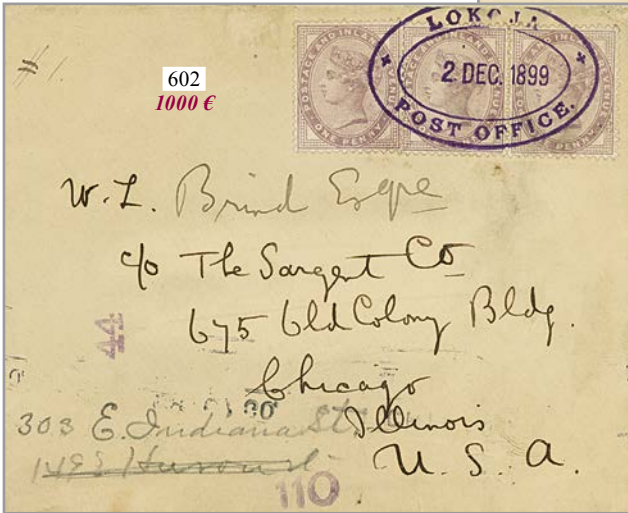 LOKOJA
2 DEC. 1899
POST OFFICE.
POSTAGE AND INLAND REVENUE
ONE PENNY
602
1000 €
W. L. Brind Esqre
c/o The Sargent Co
675 Old Colony Bldg.
Chicago
Illinois
U. S. A.
44
303 E. Indiana St
110